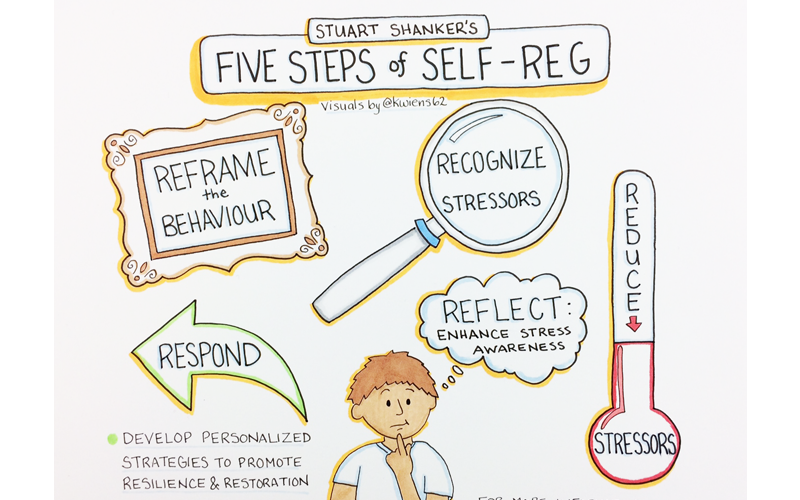 STUART SHANKER'S
FIVE STEPS of SELF-REG
Visuals by @kwiens62
REFRAME
the
BEHAVIOUR
RECOGNIZE
STRESSORS
REDUCE
STRESSORS
REFLECT:
ENHANCE STRESS
AWARENESS
RESPOND
DEVELOP PERSONALIZED
STRATEGIES TO PROMOTE
RESILIENCE & RESTORATION